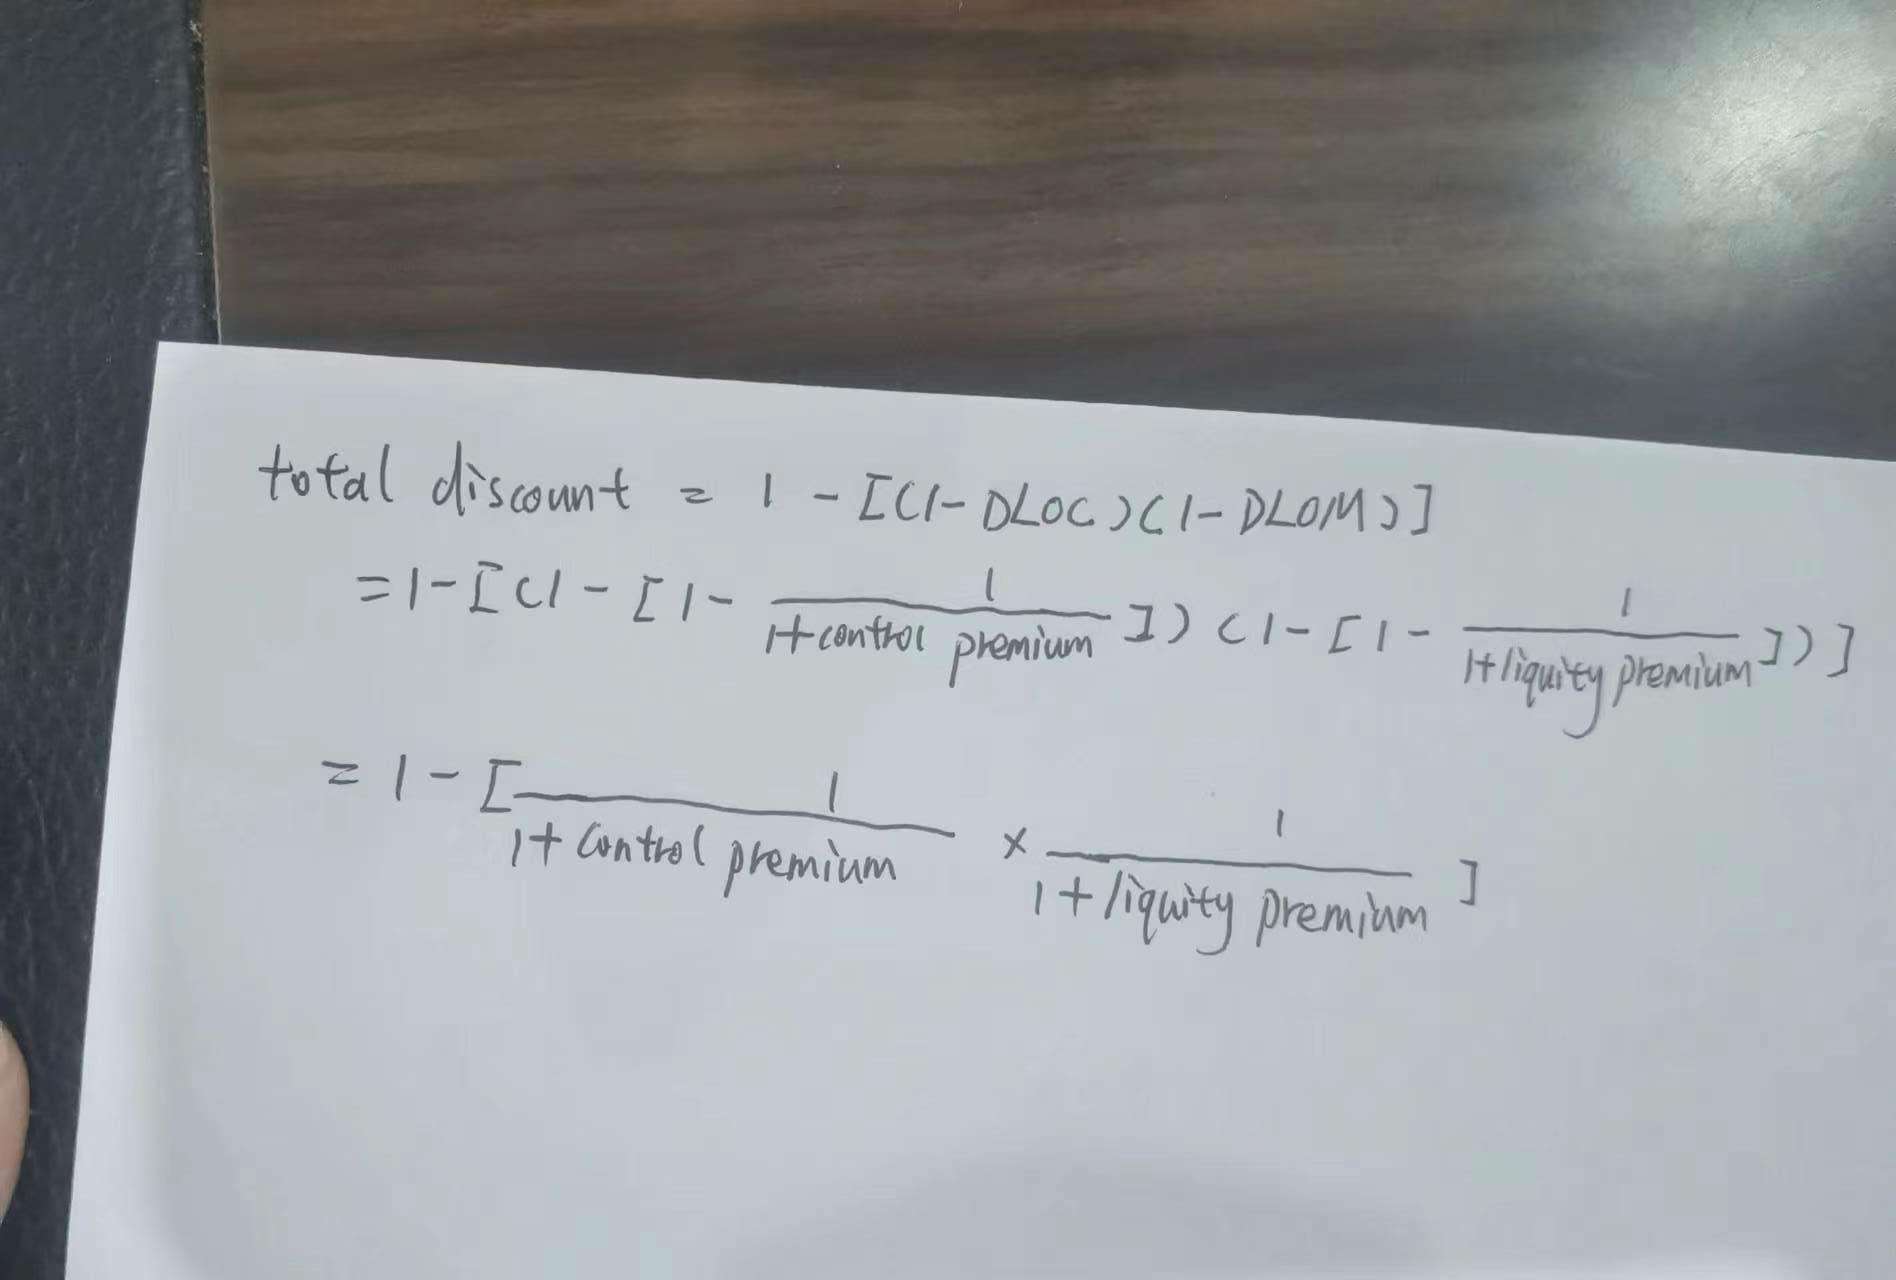 total discount = 1 - [(1 - DLOC)(1 - DLOM)]
= 1 - [(1 - [1 - \frac{1}{1+control premium}])(1 - [1 - \frac{1}{1+liquity premium}])]
= 1 - [\frac{1}{1+control premium} × \frac{1}{1+liquity premium}]